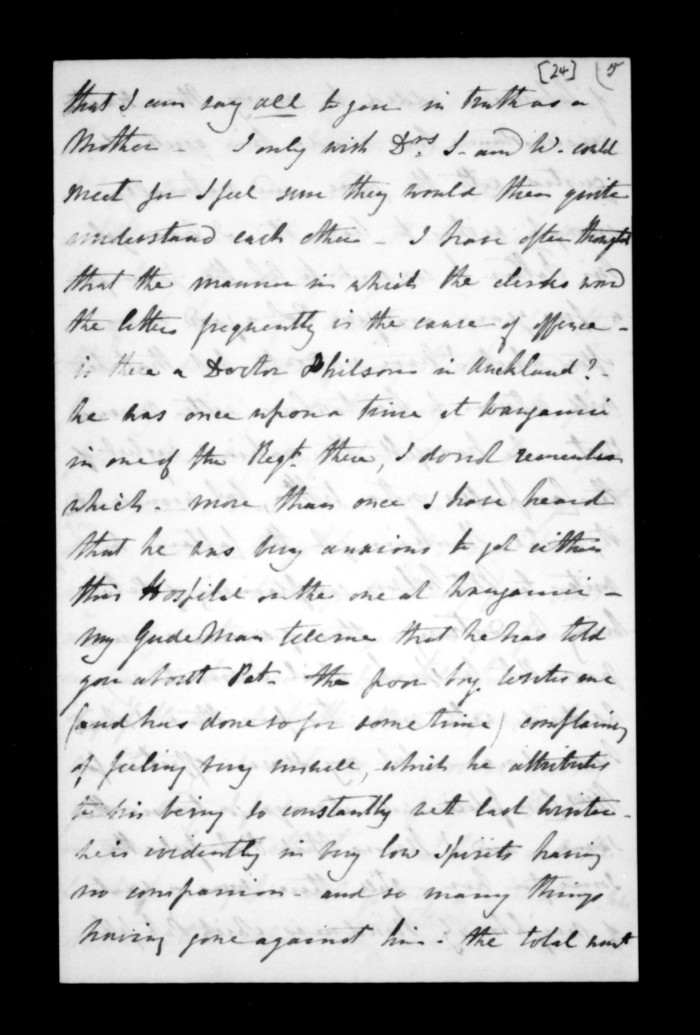 [24] (5
that I can say all to you in truth as a
Mother - I only wish Drs J. and W. could
meet for I feel sure they would then quite
understand each other - I have often thought
that the manner in which the clerks word
the letters frequently is the cause of offence -
is there a Doctor Philson in Auckland? -
he was once upon a time at Wanganui
in one of the Regts there, I do not remember
which. more than once I have heard
that he was very anxious to get either
this Hospital or the one at Wanganui -
My Gude Man tells me that he has told
you about Pat. the poor boy writes me
(and has done so for some time) complaining
of feeling very unwell, which he attributes
to his being so constantly wet last Winter -
he is evidently in very low spirits having
no companion - and so many things
having gone against him: the total want